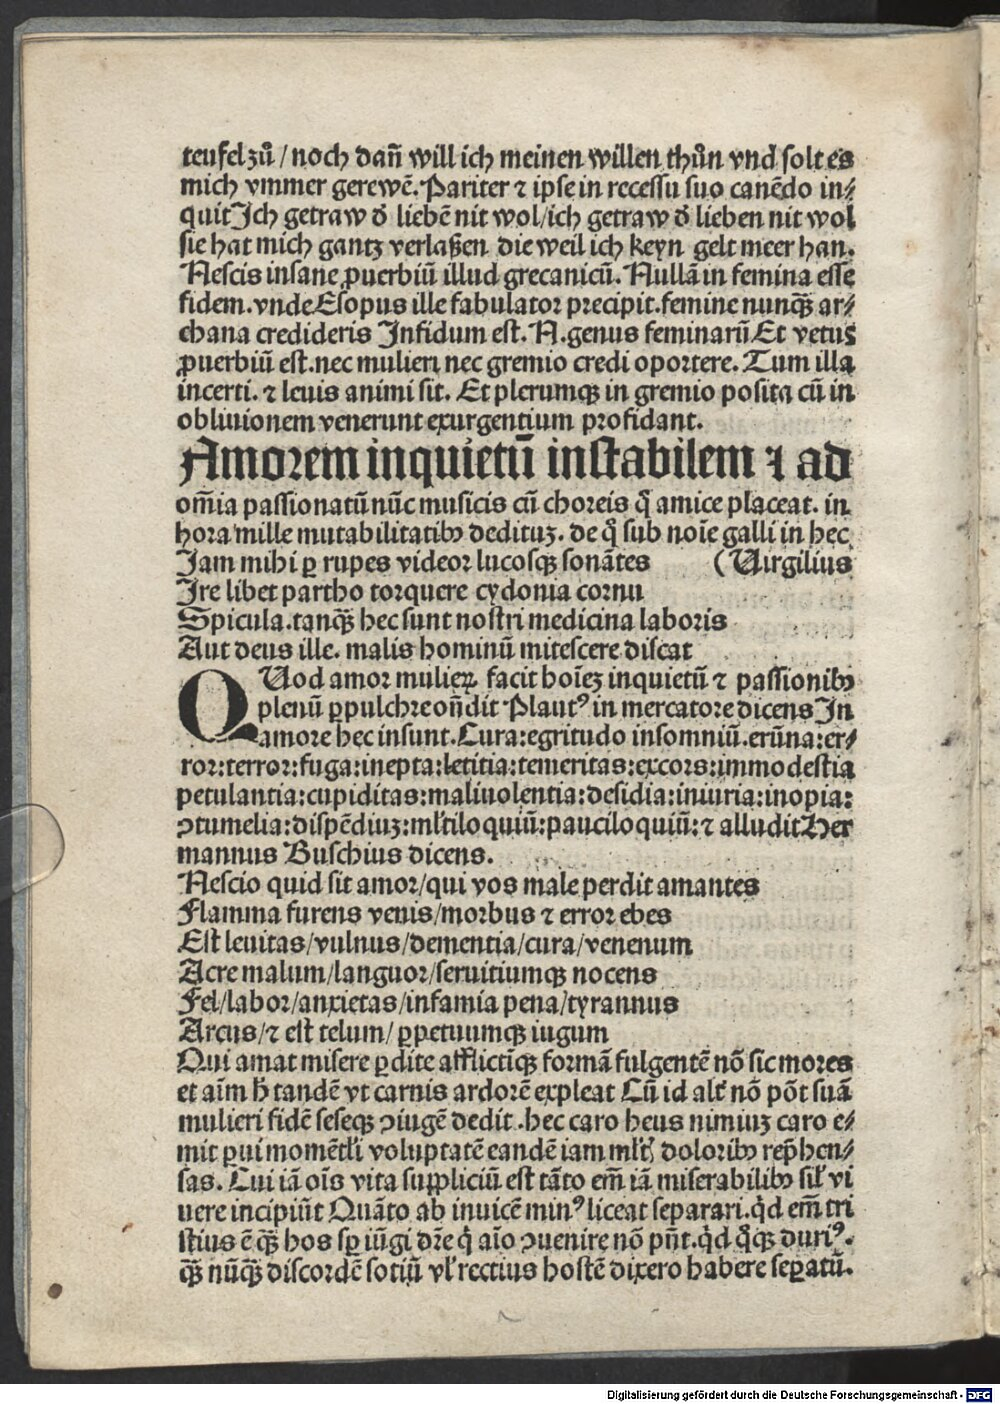 teufel zů / noch dañ will ich meinen willen thůn vnd solt es
mich ymmer gerewē. Pariter ⁊ ipse in recessu suo canēdo in⸗
quit Ich getraw ð liebē nit wol/ich getraw ð lieben nit wol
sie hat mich gantz verlaßen die weil ich keyn gelt meer han.
Nescis insane ꝓuerbiū illud grecanicū. Nullā in femina esse
fidem. vnde Esopus ille fabulator precipit. femine nunqȝ ar⸗
chana credideris Infidum est. N. genus feminarū Et vetus
ꝓuerbiū est. nec mulieri nec gremio credi oportere. Tum illa
incerti. ⁊ leuis animi sit. Et plerumqȝ in gremio posita cū in
obliuionem venerunt exurgentium profidant.
Amorem inquietū instabilem ⁊ ad
om̄ia passionatū nūc musicis cū choreis q̄ amice placeat. in
hora mille mutabilitatibꝰ dedituȝ. de q̊ sub noīe galli in hec
Jam mihi ꝑ rupes videor lucosqȝ sonātes (Virgilius
Ire libet partho torquere cydonia cornu
Spicula. tanqȝ hec sunt nostri medicina laboris
Aut deus ille. malis hominū mitescere discat
QUod amor mulieꝝ facit hoīeȝ inquietū ⁊ passionibꝰ
plenū ꝑpulchre oñdit Plautꝰ in mercatore dicens In
amore hec insunt. Cura: egritudo insomniū. erūna: er⸗
ror: terror: fuga: inepta: letitia: temeritas: excors: immodestia
petulantia: cupiditas: maliuolentia: desidia: iniuria: inopia:
ↄtumelia: dispēdiuȝ: ml̄tiloquiū: pauciloquiū: ⁊ alludit Her
mannus Buschius dicens.
Nescio quid sit amor/qui vos male perdit amantes
Flamma furens venis/morbus ⁊ error ebes
Est leuitas/vulnus/dementia/cura/venenum
Acre malum/languor/seruitiumqȝ nocens
Fel/labor/anxietas/infamia pena/tyrannus
Arcus/⁊ est telum/ ꝑpetuumqȝ iugum
Qui amat misere ꝑdite afflictīqȝ formā fulgentē nō sic mores
et aīm ħ tandē vt carnis ardorē expleat Cū id alt̓ nō pōt suā
mulieri fidē seseqȝ ↄiugē dedit. hec caro heus nimiuȝ caro e⸗
mit ꝑui momēti voluptatē eandē iam ml̄t doloribꝰ rep̄hen⸗
sas. Cui iā oīs vita suppliciū est tāto em̄ iā miserabilibꝰ sil̓ vi
uere incipiūt Quāto ab inuicē minꝰ liceat separari. qd̓ em̄ tri
stius ē qȝ hos sꝑ iūgi dr̄e q̓ aīo ↄuenire nō pn̄t. qd̓ q̊qȝ duriꝰ.
qȝ nūqȝ discordē sotiū vl̓ rectius hostē dixero habere seꝑatū.
Digitalisierung gefördert durch die Deutsche Forschungsgemeinschaft - DFG